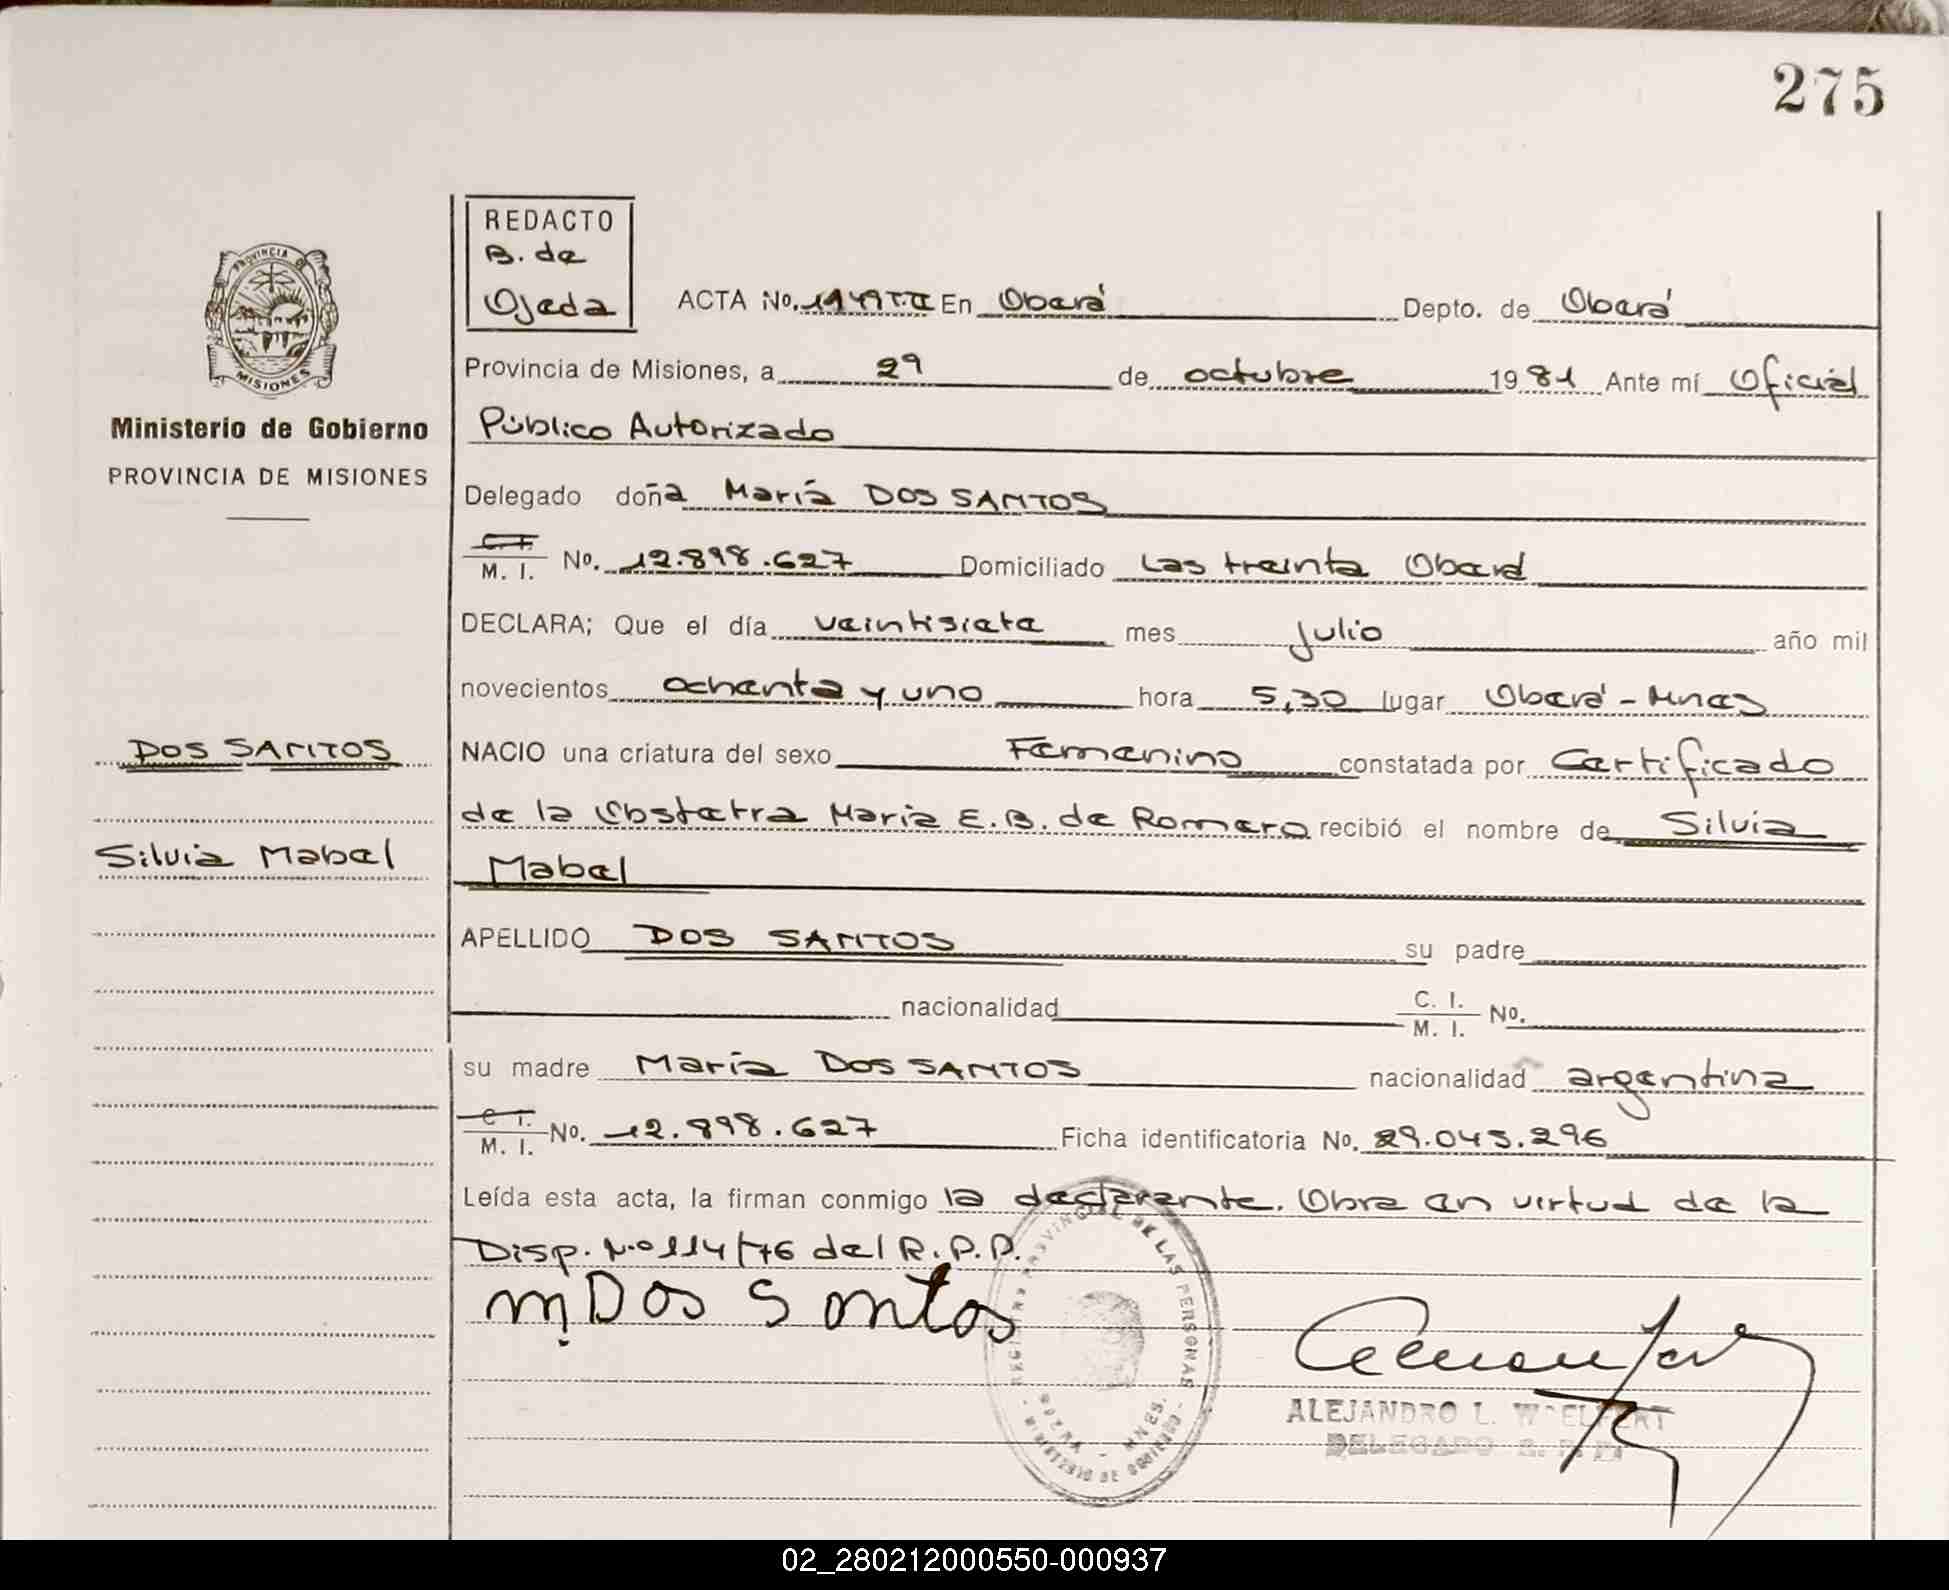 275
REDACTO
B. de
Ojeda
PROVINCIA DE
MISIONES
Ministerio de Gobierno
PROVINCIA DE MISIONES
ACTA No. En Oberá Depto. de Oberá
Provincia de Misiones, a 29 de octubre 1981 Ante mí Oficial
Público Autorizado
Delegado doña María DOS SANTOS
C. I. M. I. No. 12.898.627 Domiciliado Las treinta Oberá
DECLARA; Que el día veintisiete mes julio año mil
novecientos ochenta y uno hora 5,30 lugar Oberá - Mnes
DOS SANTOS
Silvia Mabel
NACIO una criatura del sexo Femenino constatada por Certificado
de la Obstetra María E. B. de Romero recibió el nombre de Silvia
Mabel
APELLIDO DOS SANTOS su padre
nacionalidad C. I. M. I. No.
su madre María DOS SANTOS nacionalidad argentina
C. I. M. I. No. 12.898.627 Ficha identificatoria No. 29.043.296
Leída esta acta, la firman conmigo la declarante. Obra en virtud de la
Disp. N.º 114/76 del R.P.P.
m Dos Santos
REGISTRO PROVINCIAL DE LAS PERSONAS
OBERA - MNES.
MINISTERIO DE GOBIERNO
ALEJANDRO L. WOELFERT
DELEGADO R. P. P.
02_280212000550-000937